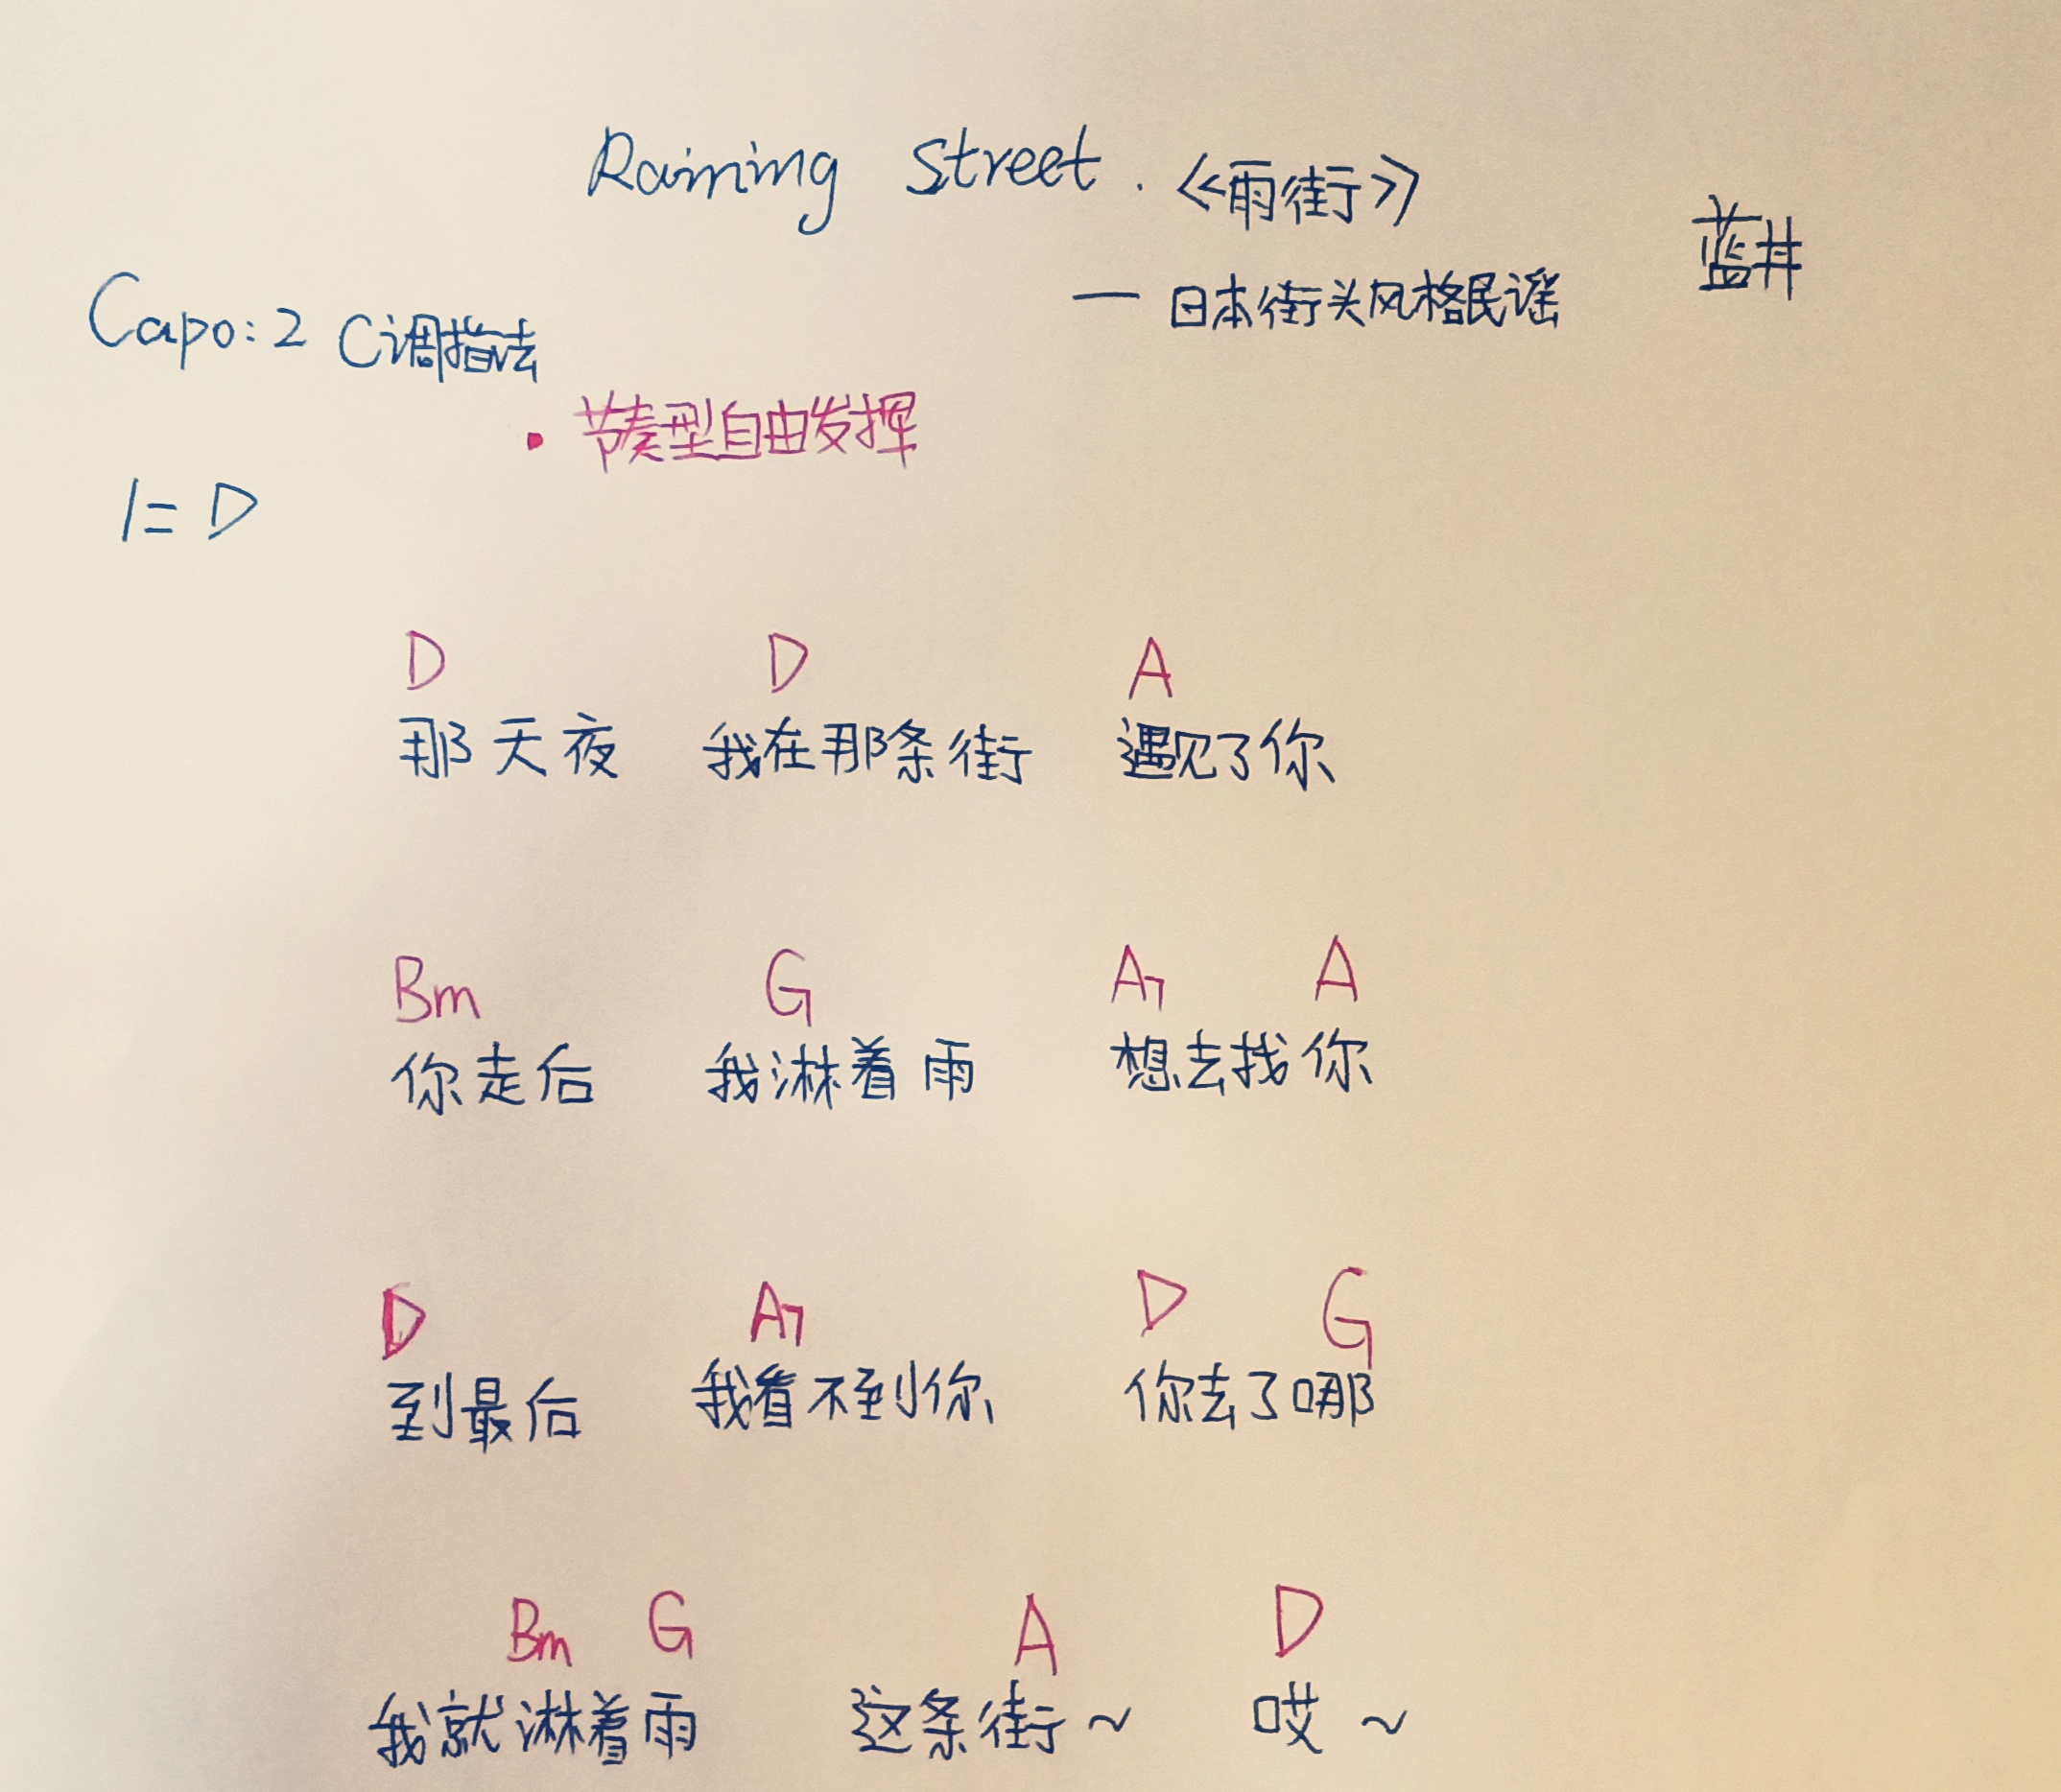 Raining Street. 《雨街》
蓝井
— 日本街头风格民谣
Capo: 2 C调指法
• 节奏型自由发挥
1= D
D D A
那天夜 我在那条街 遇见了你
Bm G A7 A
你走后 我淋着雨 想去找你
D A7 D G
到最后 我看不到你 你去了哪
Bm G A D
我就淋着雨 这条街~ 哎~